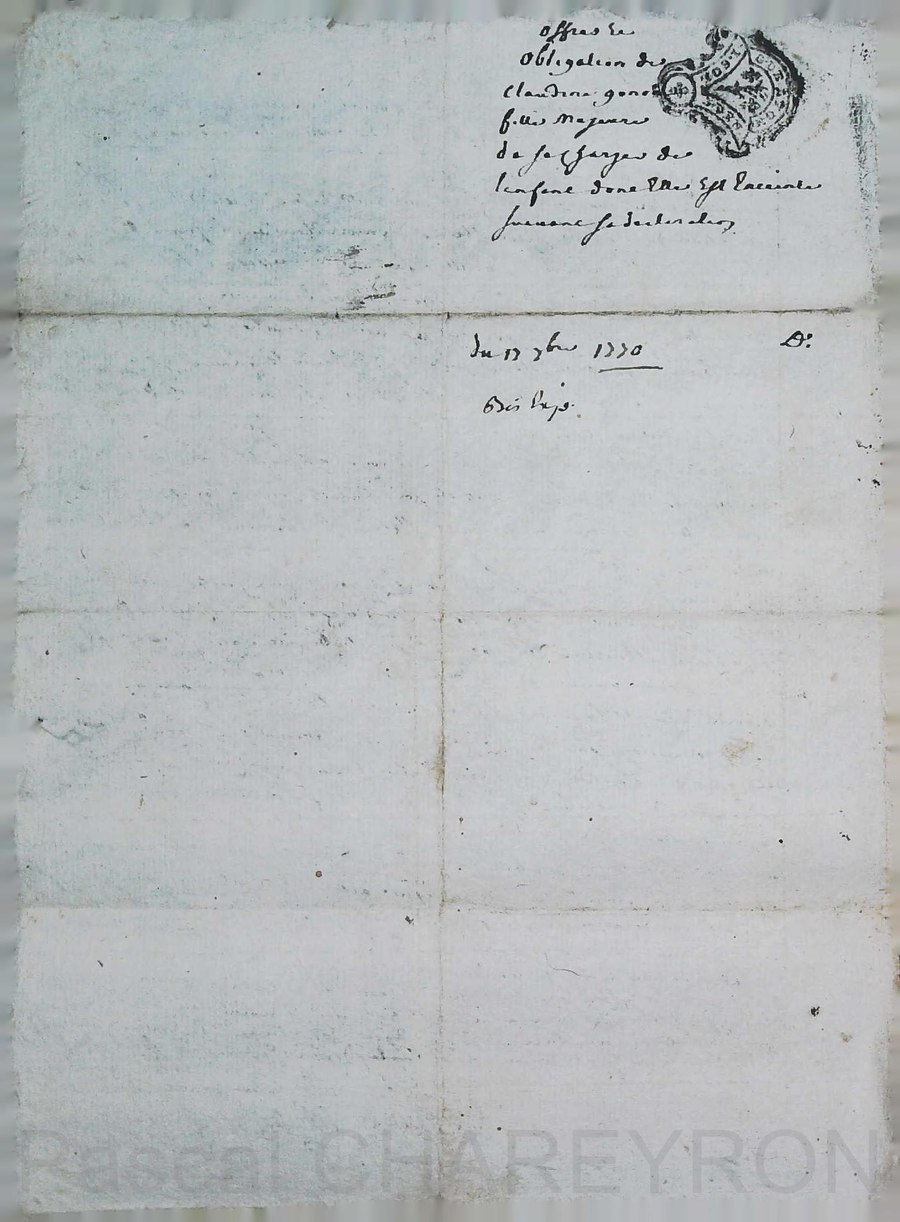 offres et
obligation de
Claudine
fille majeure
de se charger de
l'enfant dont Elle Est Enceinte
suivant sa declaration
du 17 7bre 1770
Pascal CHAREYRON